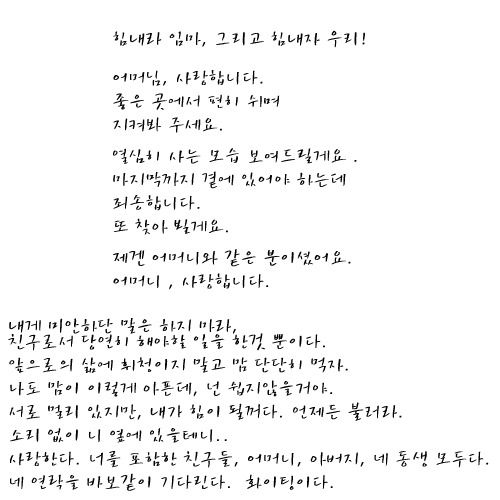 힘내라 임마, 그리고 힘내자 우리!
어머님, 사랑합니다.
좋은 곳에서 편히 쉬며
지켜봐 주세요.
열심히 사는 모습 보여드릴게요 .
마지막까지 곁에 있어야 하는데
죄송합니다.
또 찾아 뵐게요.
제겐 어머니와 같은 분이셨어요.
어머니 , 사랑합니다.
내게 미안하단 말은 하지 마라,
친구로서 당연히 해야할 일을 한것 뿐이다.
앞으로의 삶에 휘청이지 말고 맘 단단히 먹자.
나도 맘이 이렇게 아픈데, 넌 쉽지않을거야.
서로 멀리 있지만, 내가 힘이 될꺼다. 언제든 불러라.
소리 없이 니 옆에 있을테니..
사랑한다. 너를 포함한 친구들, 어머니, 아버지, 네 동생 모두다.
네 연락을 바보같이 기다린다. 화이팅이다.